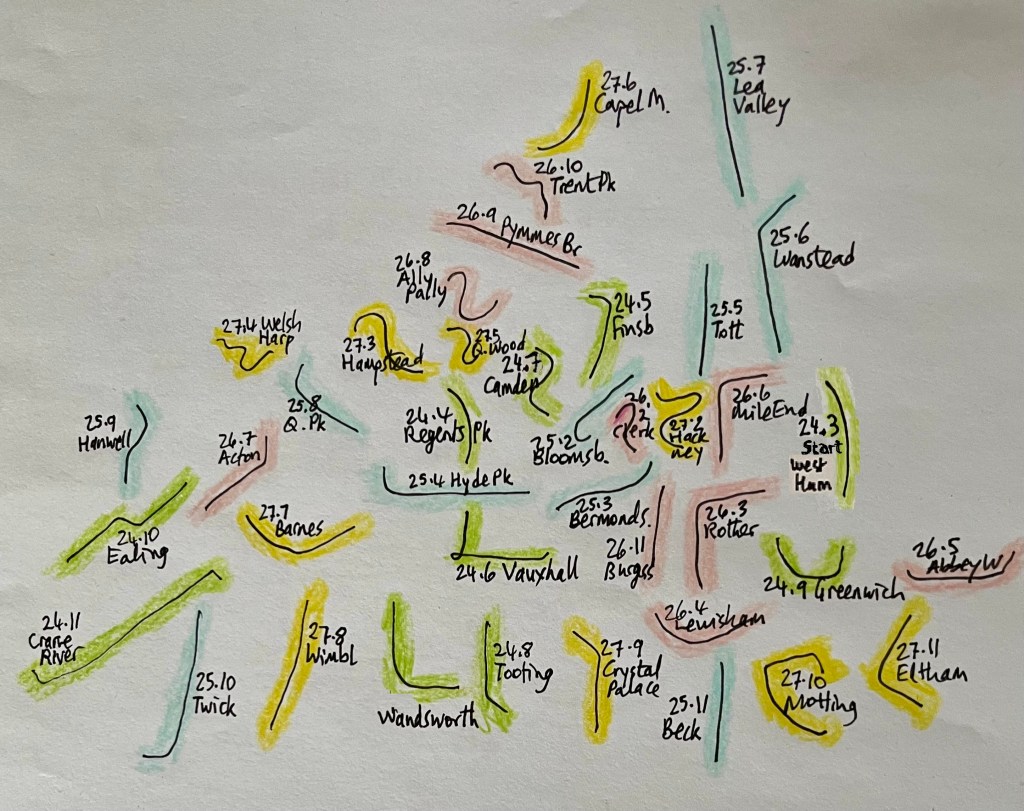 27.6
Capel M.
25.7
Lea
Valley
26.10
Trent Pk
26.9 Pymmes Br
25.6
Wanstead
26.8
Ally
Pally
24.5
Finsb
25.5
Tott
27.4 Welsh
Harp
27.3
Hampstead
27.5
Q. Wood
24.7
Camden
25.8
Q. Pk
24.4
Regents Pk
25.2
Bloomsb.
26.
2
Clerk
27.2
Hack
ney
26.6
Mile End
24.3
Start
West
Ham
25.9
Hanwell
26.7
Acton
25.4 Hyde Pk
25.3
Bermonds.
26.3
Rother
24.10
Ealing
27.7
Barnes
24.6 Vauxhall
26.11
Burgss
24.9 Greenwich
26.5
Abbey W
24.11
Crane
River
25.10
Twick
27.8
Wimbl
Wandsworth
24.8
Tooting
27.9
Crystal
Palace
26.4
Lewisham
25.11
Beck
27.10
Motting
27.11
Eltham